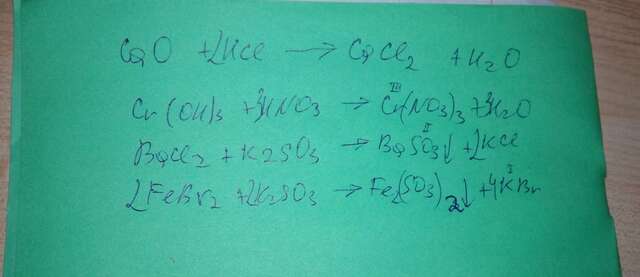 CaO + 2HCl → CaCl2 + H2O
Cr(OH)3 + 3HNO3 → Cr(NO3)3 + 3H2O III
BaCl2 + K2SO3 → BaSO3↓ + 2KCl II
2FeBr2 + 2K2SO3 → Fe2(SO3)2↓ + 4KBr I